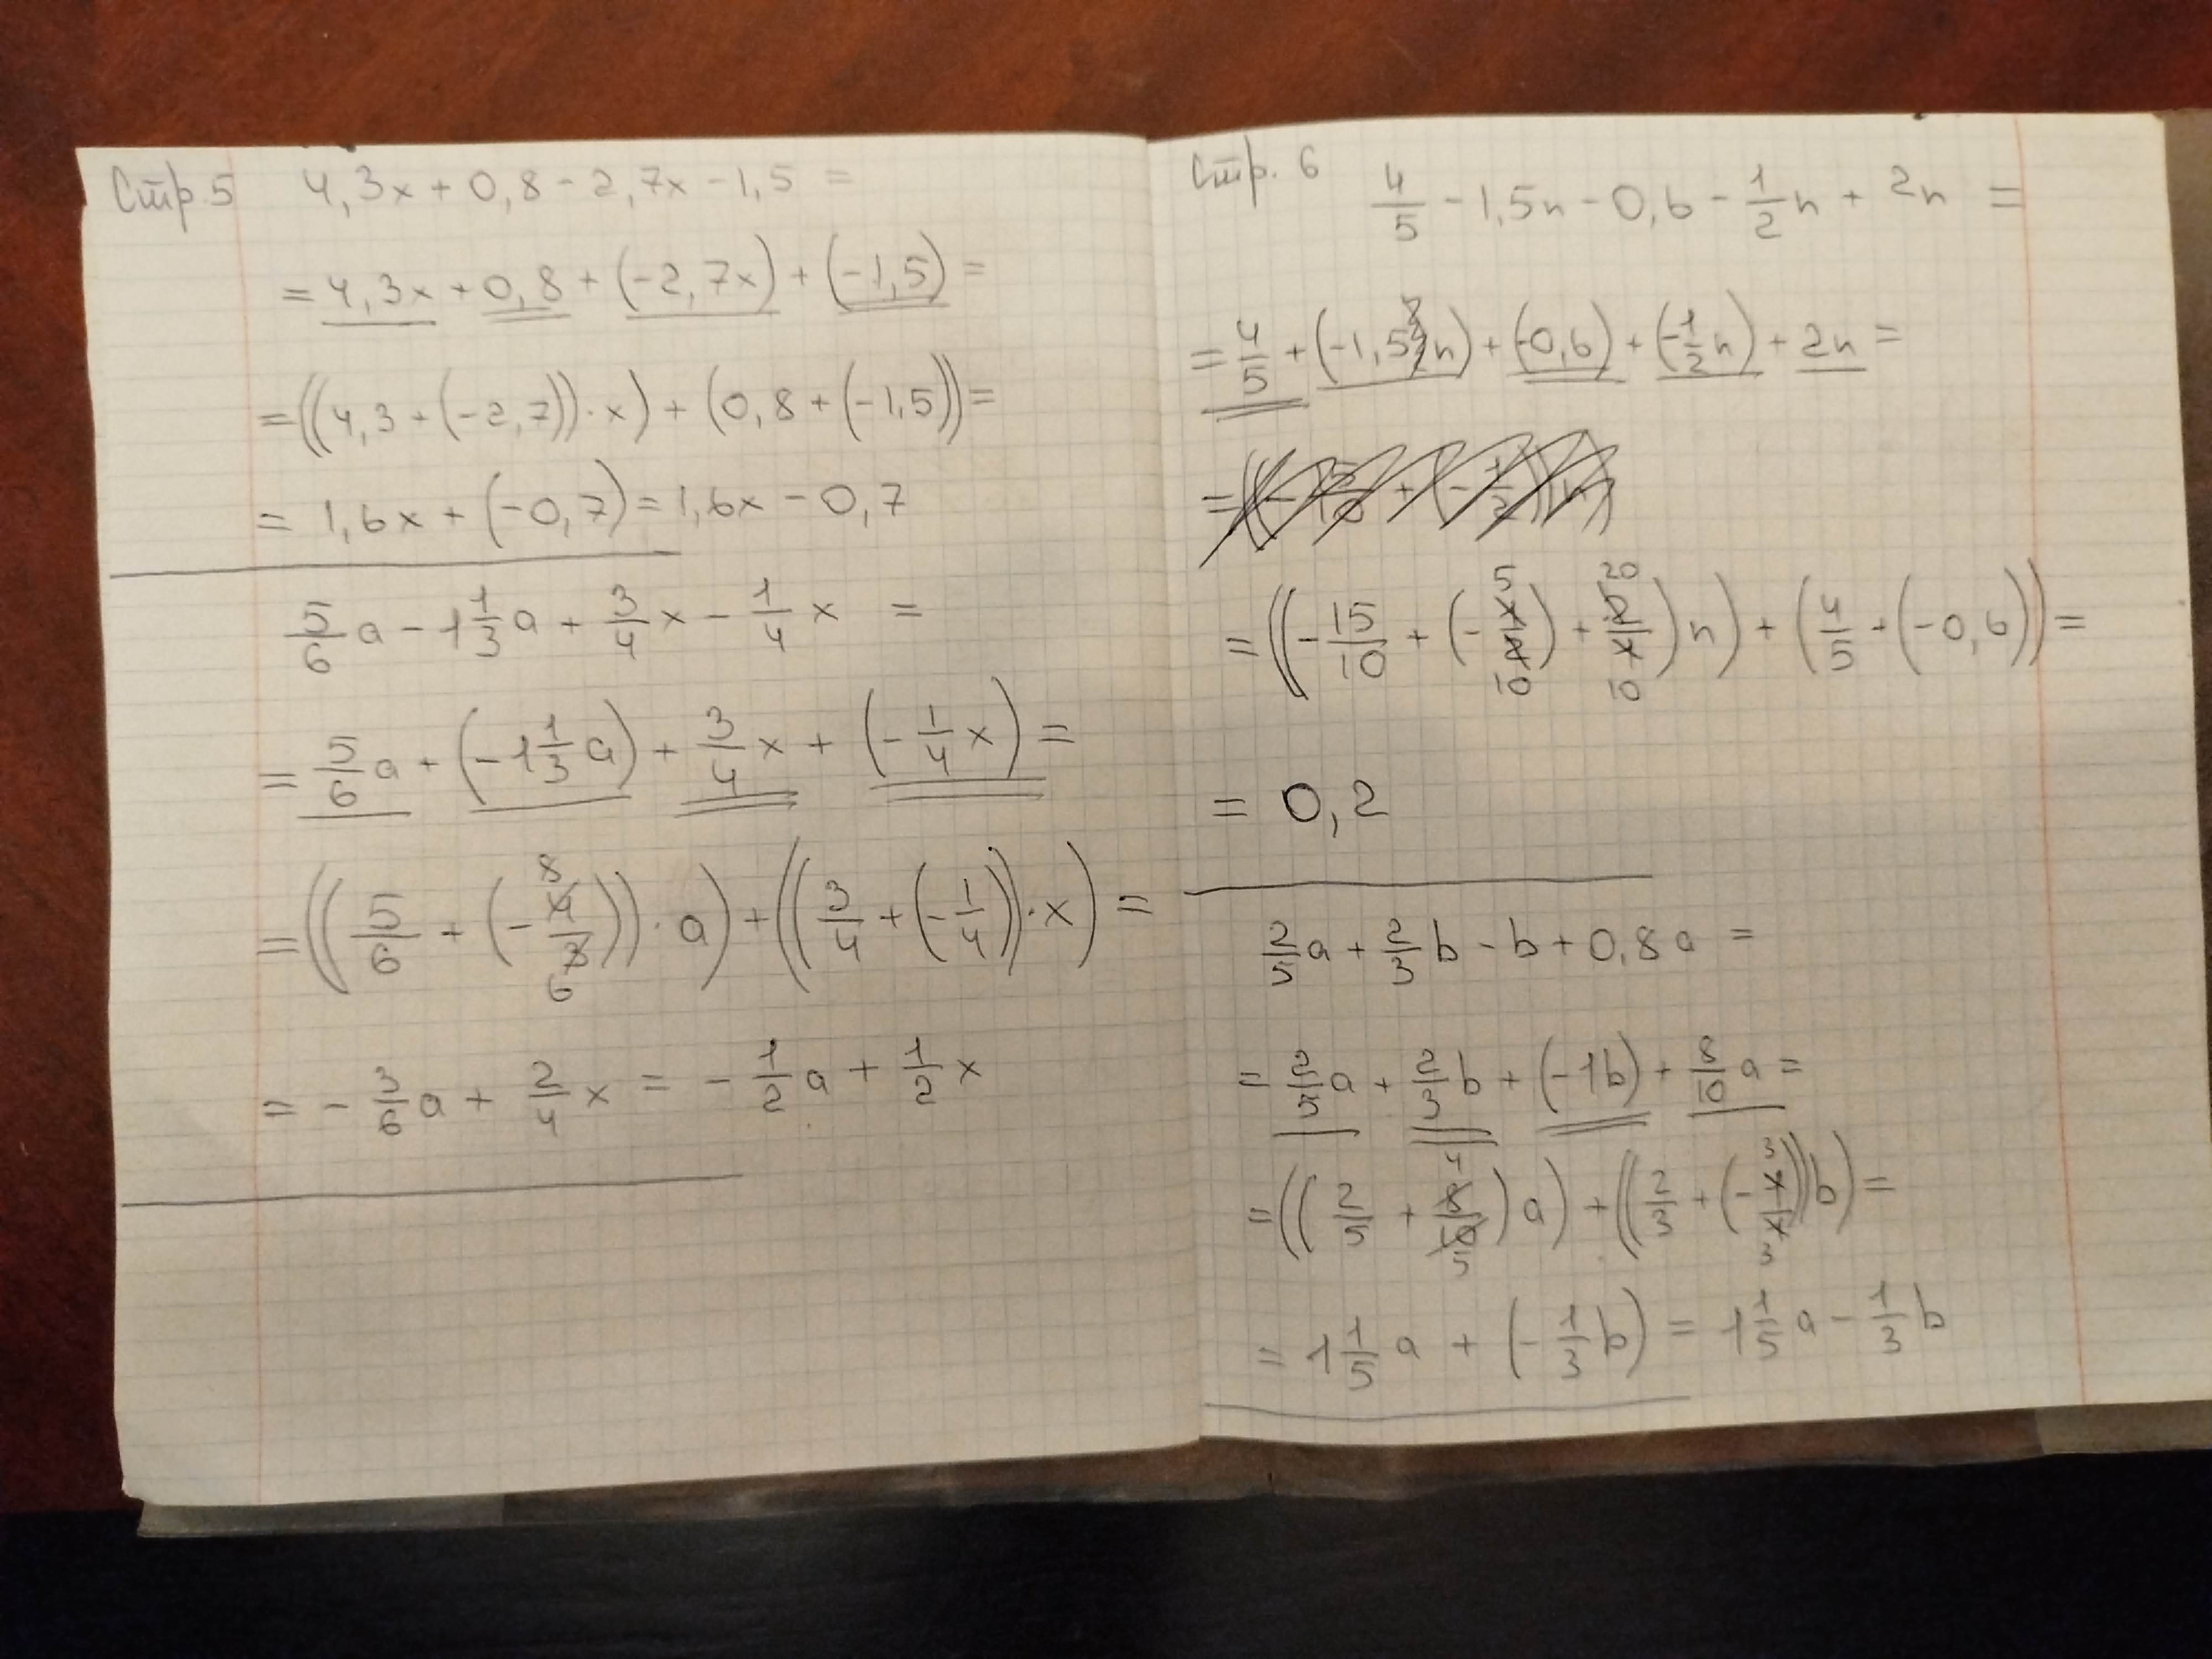 Стр. 5 4,3x + 0,8 - 2,7x - 1,5 =
= 4,3x + 0,8 + (-2,7x) + (-1,5) =
= ((4,3 + (-2,7)) · x) + (0,8 + (-1,5)) =
= 1,6x + (-0,7) = 1,6x - 0,7
5/6 a - 1 1/3 a + 3/4 x - 1/4 x =
= 5/6 a + (-1 1/3 a) + 3/4 x + (-1/4 x) =
= ((5/6 + (-8/6)) · a) + ((3/4 + (-1/4)) · x) =
= - 3/6 a + 2/4 x = - 1/2 a + 1/2 x
Стр. 6 4/5 - 1,5n - 0,6 - 1/2 n + 2n =
= 4/5 + (-1,5n) + (-0,6) + (-1/2 n) + 2n =
= ((-15/10 + (-5/10) + 20/10) n) + (4/5 + (-0,6)) =
= 0,2
2/5 a + 2/3 b - b + 0,8a =
= 2/5 a + 2/3 b + (-1b) + 8/10 a =
= ((2/5 + 4/5) a) + ((2/3 + (-3/3)) b) =
= 1 1/5 a + (-1/3 b) = 1 1/5 a - 1/3 b